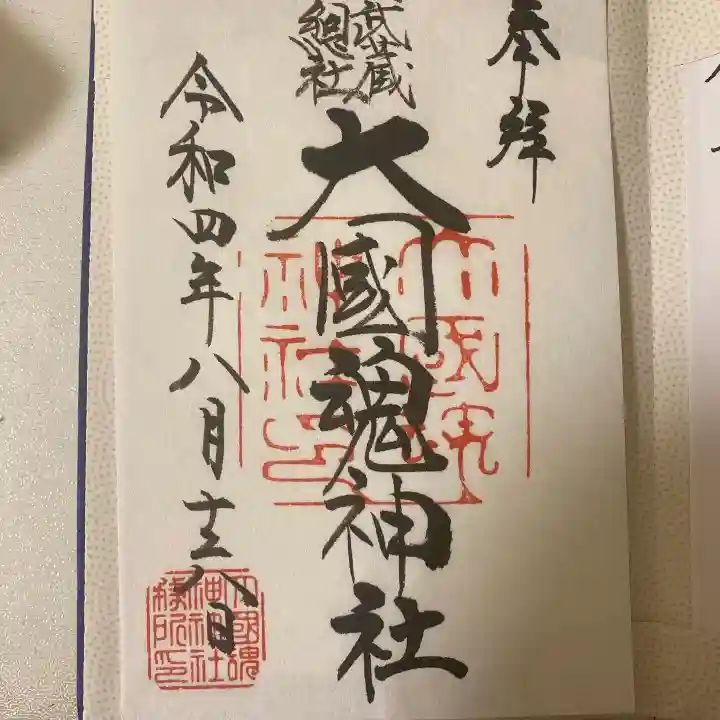 奉拜
武蔵
總社
大國魂神社
令和四年八月十六日
大國魂
神社印
大國魂
神社社
務所印